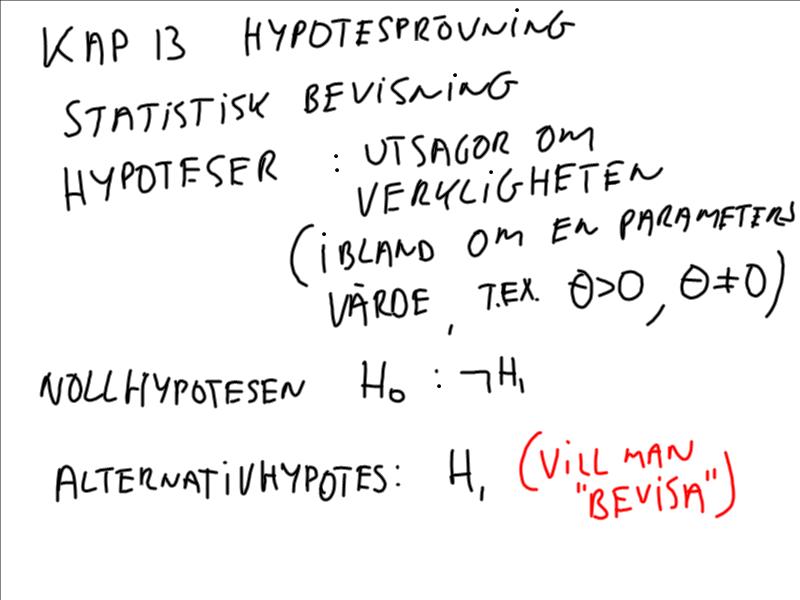 KAP 13 HYPOTESPRÖVNING
STATISTISK BEVISNING
HYPOTESER : UTSAGOR OM
VERKLIGHETEN
(IBLAND OM EN PARAMETERS
VÄRDE, T.EX. θ>0, θ≠0)
NOLLHYPOTESEN H₀ : ¬H₁
ALTERNATIVHYPOTES: H₁ (VILL MAN
"BEVISA")